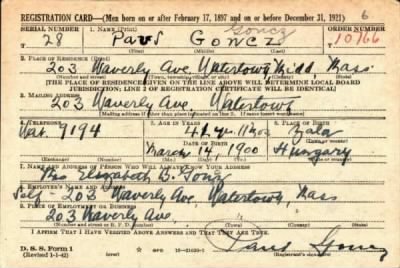 REGISTRATION CARD—(Men born on or after February 17, 1897 and on or before December 31, 1921) 6
SERIAL NUMBER 1. NAME (Print) Goncz ORDER NUMBER
28 Paul Goncz 10766
(First) (Middle) (Last)
2. PLACE OF RESIDENCE (Print)
203 Waverly Ave Watertown Midd. Mass.
(Number and street) (Town, township, village, or city) (County) (State)
[THE PLACE OF RESIDENCE GIVEN ON THE LINE ABOVE WILL DETERMINE LOCAL BOARD
JURISDICTION; LINE 2 OF REGISTRATION CERTIFICATE WILL BE IDENTICAL]
3. MAILING ADDRESS
203 Waverly Ave. Watertown
[Mailing address if other than place indicated on line 2. If same insert word same]
4. TELEPHONE 5. AGE IN YEARS 6. PLACE OF BIRTH
Wat. 9194 41 yr. 11 mos Zala
DATE OF BIRTH
March 14, 1900 Hungary
(Exchange) (Number) (Mo.) (Day) (Yr.) (State or country)
7. NAME AND ADDRESS OF PERSON WHO WILL ALWAYS KNOW YOUR ADDRESS
Mrs Elizabeth B. Goncz
8. EMPLOYER'S NAME AND ADDRESS
Self - 203 Waverly Ave, Watertown, Mass
9. PLACE OF EMPLOYMENT OR BUSINESS
203 Waverly Ave.
(Number and street or R. F. D. number) (Town) (County) (State)
I AFFIRM THAT I HAVE VERIFIED ABOVE ANSWERS AND THAT THEY ARE TRUE.
D. S. S. Form 1
(Revised 1-1-42) (over) 16—21630-1 Paul Goncz
(Registrant's signature)